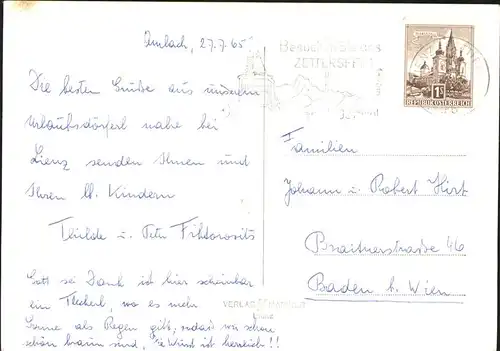 Amlach, 27.7.65
Die besten Grüße aus unserem
Urlaubsdörferl nahe bei
Lienz senden Ihnen und
Ihren lb. Kindern
Thilde u. Peter
Gott sei Dank ist hier scheinbar
ein Fleckerl, wo es mehr
Sonne als Regen gibt, sodaß wir schon
schön braun sind, ist herrlich!!
Besuchet
ZETTERSFELD
REPUBLIK ÖSTERREICH
1S
Familien
Johann u. Robert Hirt
Braitnerstraße 46
Baden b. Wien
VERLAG